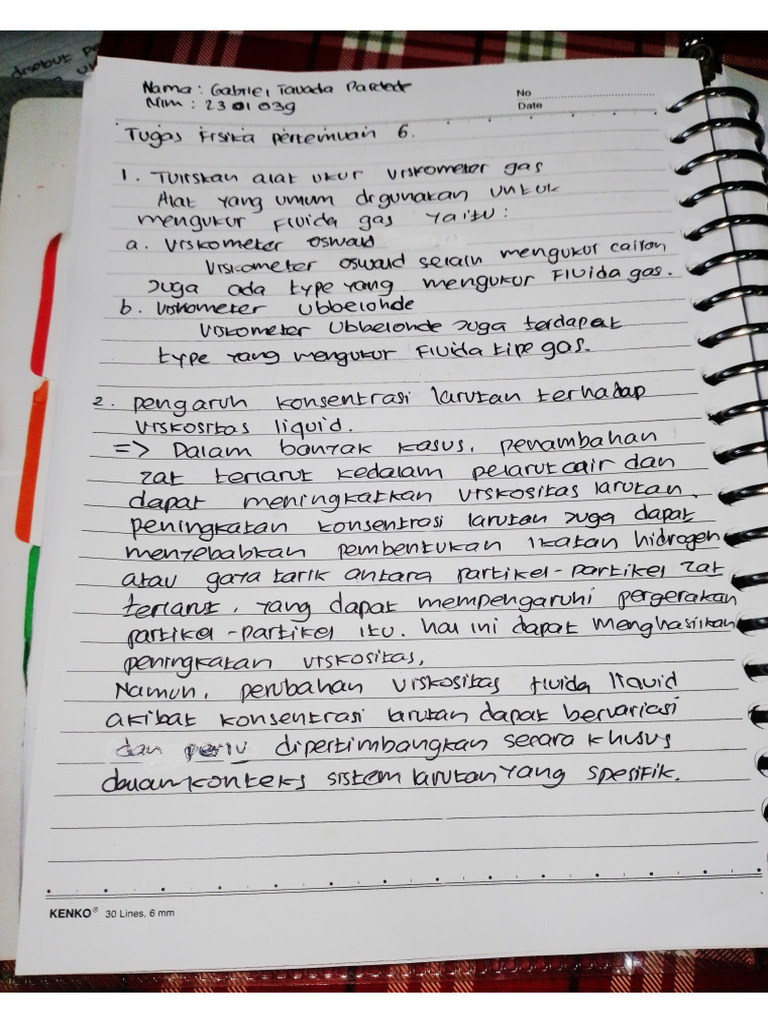 Nama : Gabriel Tauada Pardede
Nim : 2301039
No
Date
Tugas Fisika Pertemuan 6.
1. Tuliskan alat ukur Viskometer gas
Alat yang umum digunakan untuk
mengukur Fluida gas yaitu :
a. Viskometer oswald
Viskometer oswald selain mengukur cairan
Juga ada type yang mengukur Fluida gas.
b. Viskometer Ubbelonde
Viskometer Ubbelonde Juga terdapat
type yang mengukur Fluida tipe gas.
2. pengaruh konsentrasi larutan terhadap
viskositas liquid.
=> Dalam banyak kasus, penambahan
zat terlarut kedalam pelarut cair dan
dapat meningkatkan viskositas larutan,
peningkatan konsentrasi larutan Juga dapat
menyebabkan pembentukan ikatan hidrogen
atau gaya tarik antara partikel-partikel zat
terlarut, yang dapat mempengaruhi pergerakan
partikel-partikel itu. hal ini dapat menghasilkan
peningkatan viskositas,
Namun, perubahan viskositas fluida liquid
akibat konsentrasi larutan dapat bervariasi
dan perlu dipertimbangkan secara khusus
dalam konteks sistem larutan yang spesifik.
KENKO® 30 Lines, 6 mm